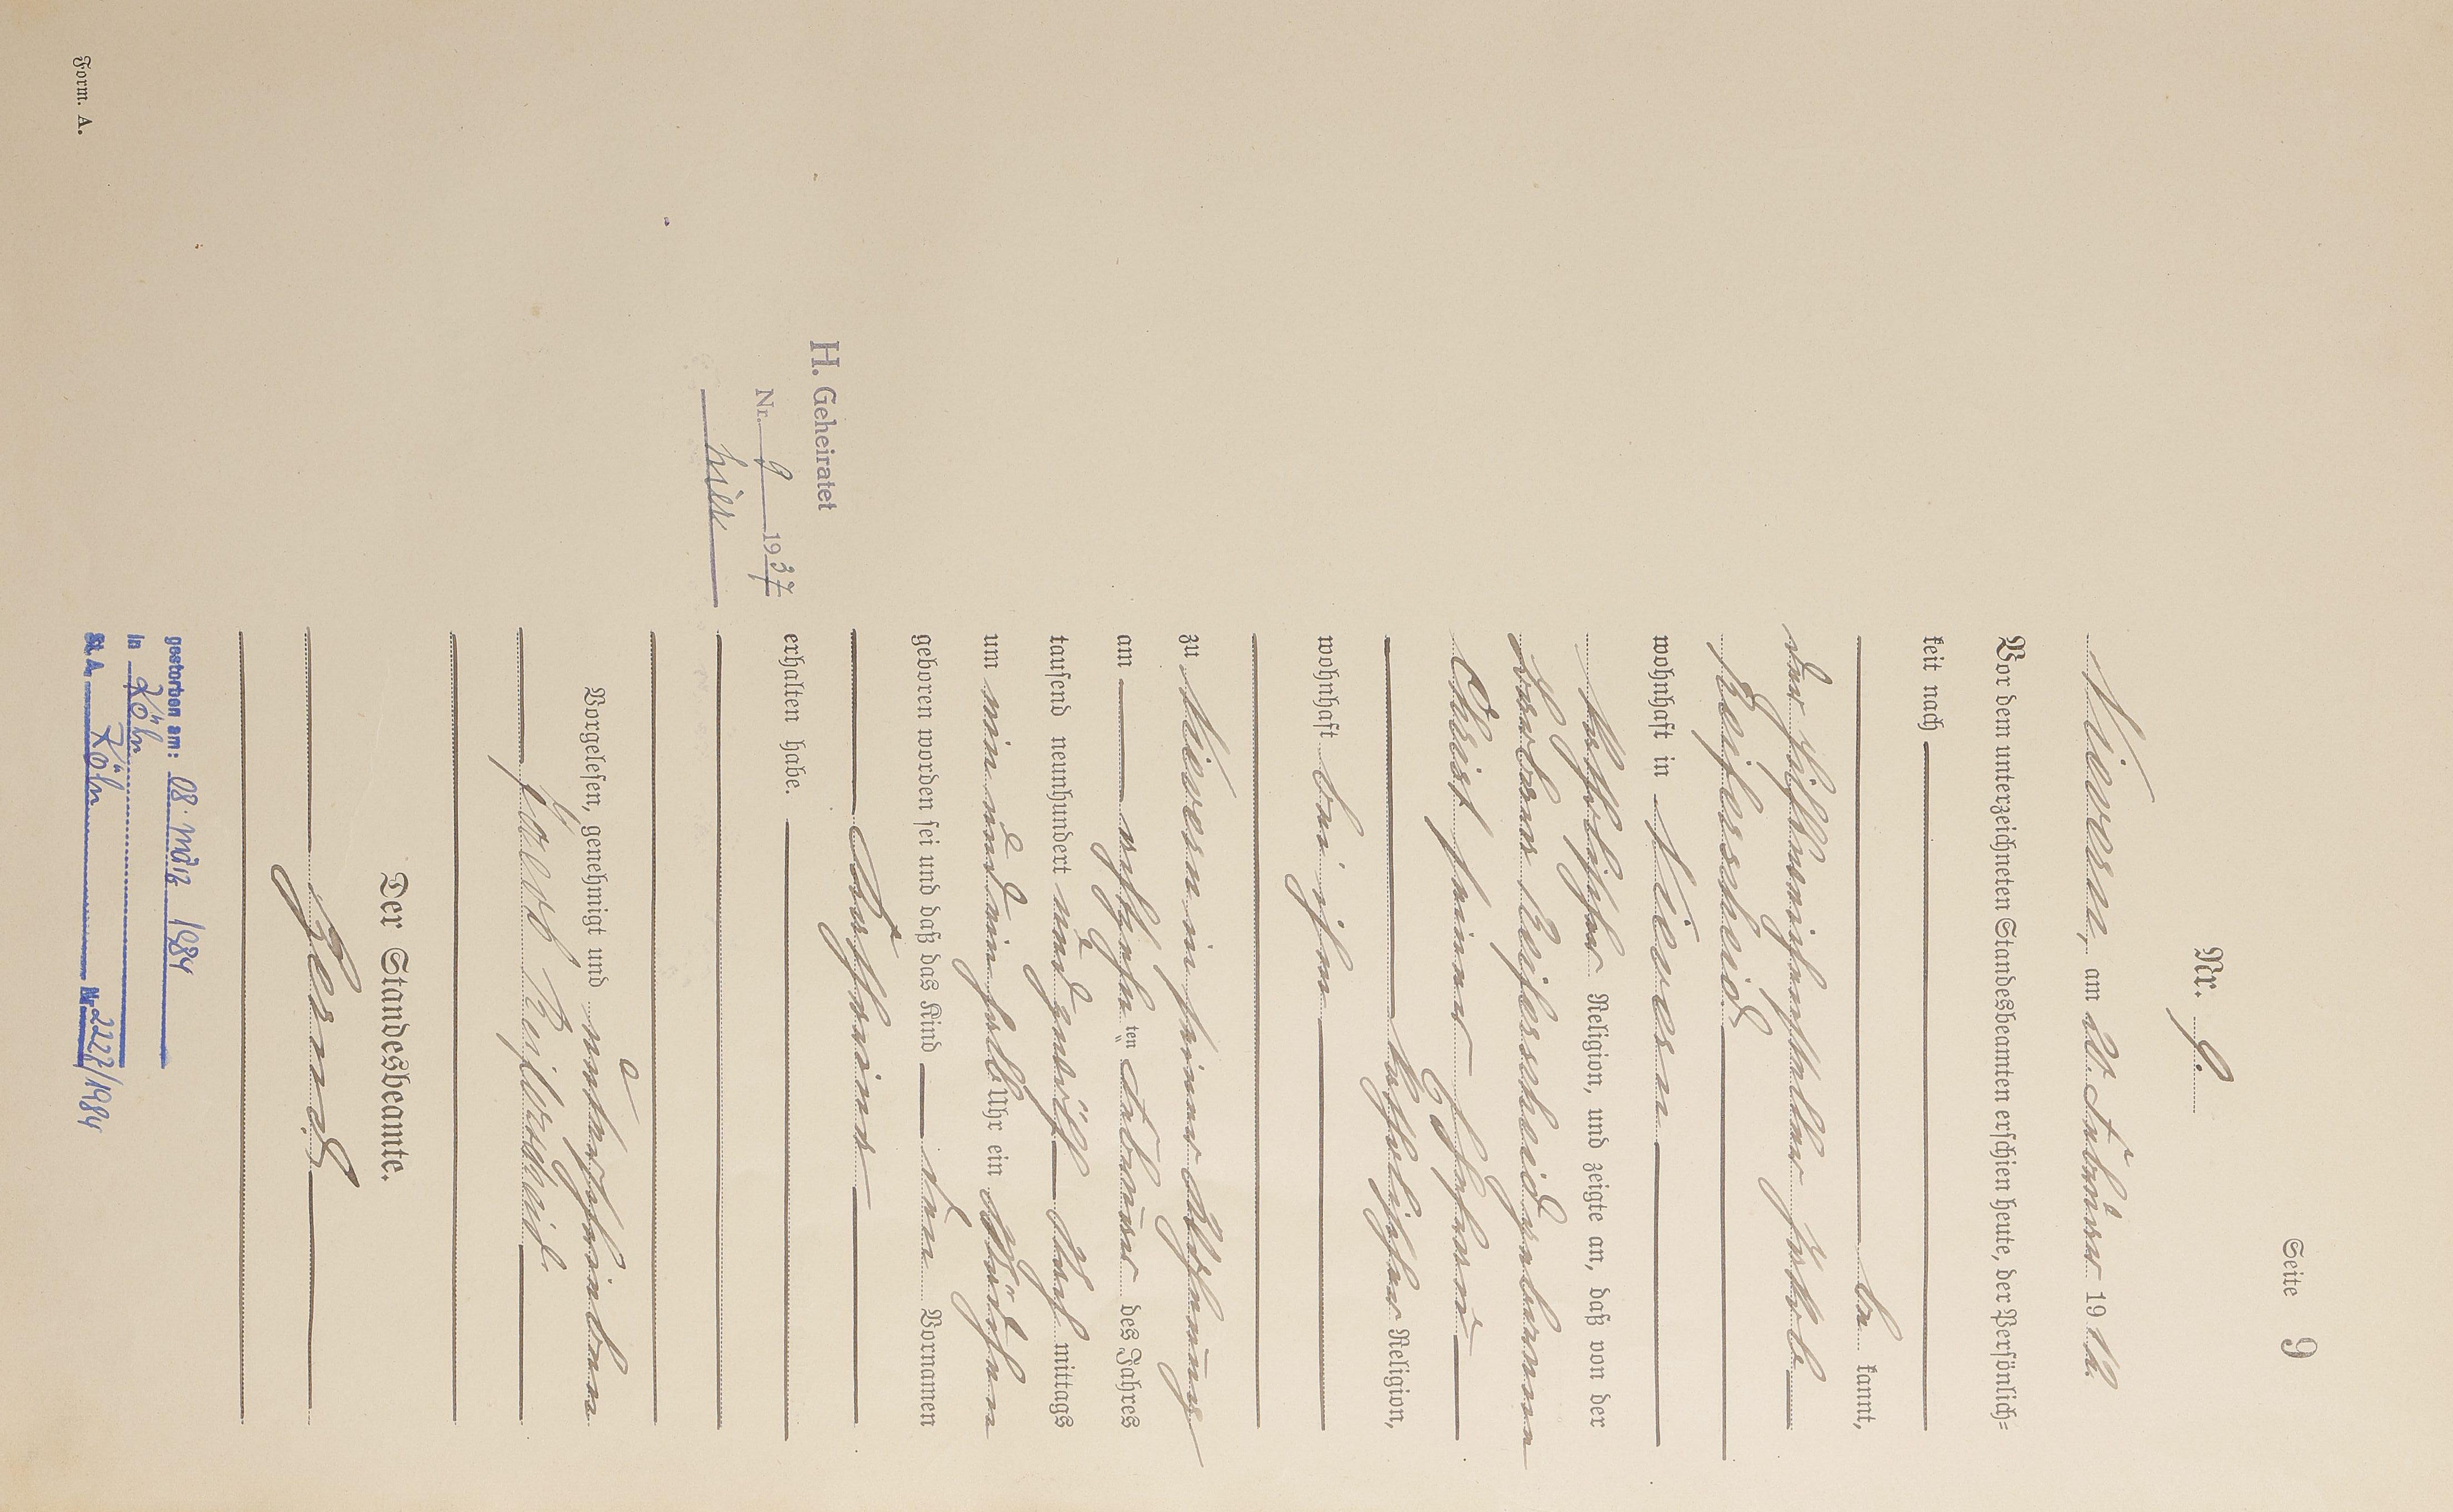 Seite 9
Nr. 9.
Nievern, am 20. Februar 1912.
Vor dem unterzeichneten Standesbeamten erschien heute, der Persönlich=
keit nach
be kannt,
der Hilfsweichensteller Jakob
Reiferscheid
wohnhaft in Nievern
katholischer Religion, und zeigte an, daß von der
Barbara Reiferscheid geborenen
Christ seiner Ehefrau
katholischer Religion,
wohnhaft bei ihm
zu Nievern in seiner Wohnung
am achtzehnten Februar des Jahres
tausend neunhundert und zwölf Nach mittags
um ein und ein halb Uhr ein Mädchen
geboren worden sei und daß das Kind den Vornamen
Kathrina
erhalten habe.
H. Geheiratet
Nr. 9 1937
hier
Vorgelesen, genehmigt und unterschrieben
Jacob Reiferscheid
Der Standesbeamte.
gestorben am: 08. März 1984
in Köln
St. A. Köln Nr. 2227/1984
Form. A.